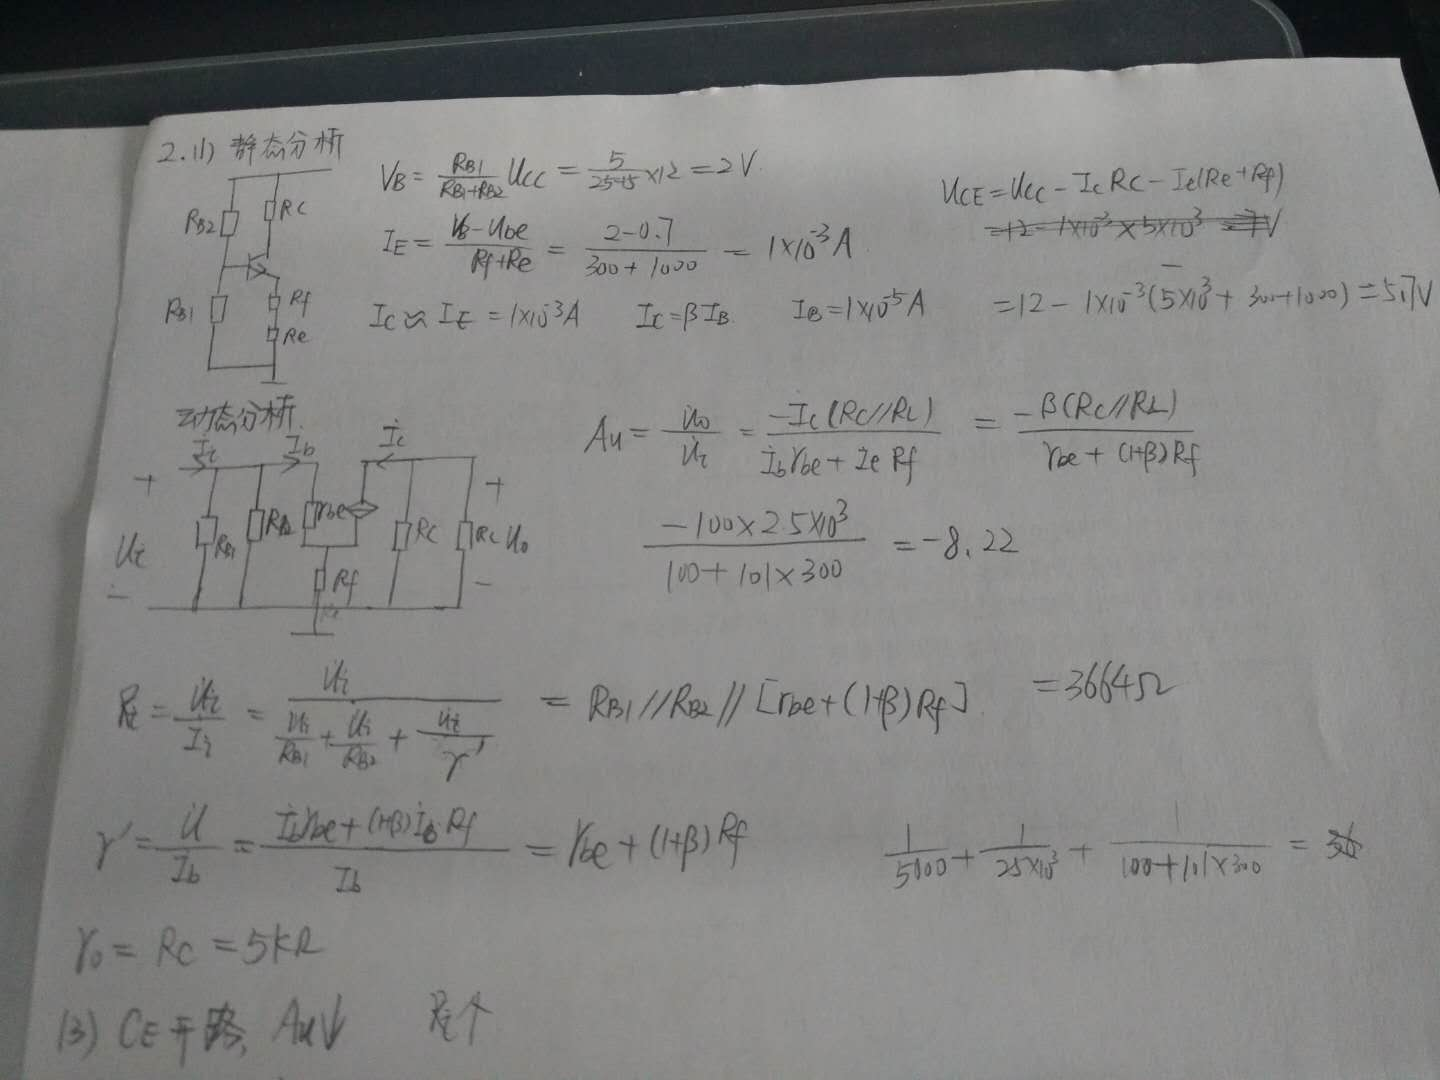 2.(1) 静态分析
RB2 RC
RB1 Rf
Re
VB = RB1/(RB1+RB2) UCC = 5/(25+5) ×12 = 2V.
IE = (VB-Ube)/(Rf+Re) = (2-0.7)/(300+1000) = 1×10^-3 A
IC ≈ IE = 1×10^-3 A IC = βIB. IB = 1×10^-5 A
UCE = UCC - IC RC - IC(Re+Rf)
=12-1×10^-3×5×10^3 =7V
=12 - 1×10^-3(5×10^3 + 300+1000) = 5.7V
动态分析.
Ii Ib Ic
+ +
Ui RB1 RB2 rbe RC RL Uo
- Rf -
Au = Uo/Ui = -Ic(RC//RL)/(Ib rbe + Ie Rf) = -β(RC//RL)/(rbe + (1+β)Rf)
-100×2.5×10^3/(100+101×300) = -8.22
Ri = Ui/Ii = Ui/(Ui/RB1 + Ui/RB2 + Ui/r') = RB1//RB2//[rbe+(1+β)Rf] =3664Ω
r' = U/Ib = (Ib rbe + (1+β)Ib Rf)/Ib = rbe + (1+β)Rf
1/5000 + 1/(25×10^3) + 1/(100+101×300) =
ro = RC = 5kΩ
(3) CE开路, Au↓ Ri↑